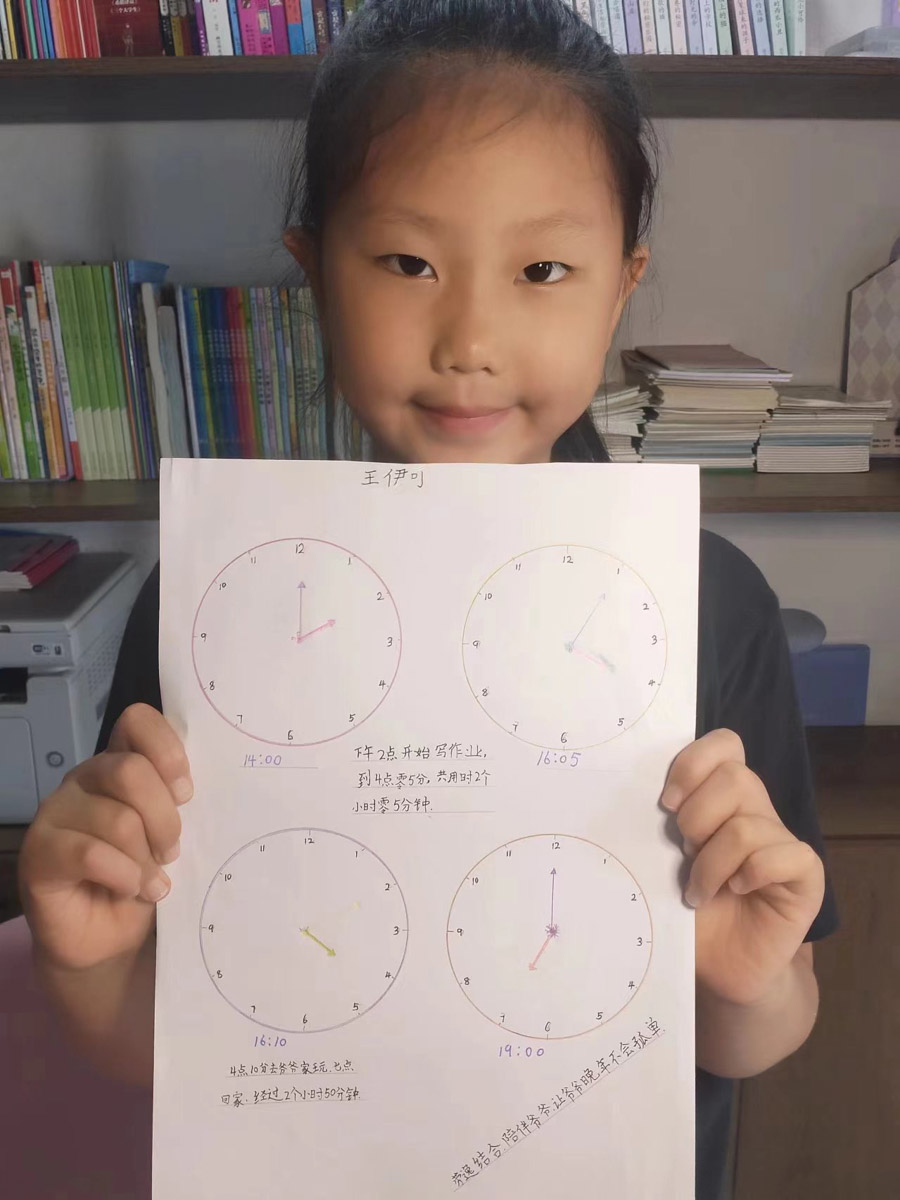 王伊可
12 1 2 3 4 5 6 7 8 9 10 11
14:00
12 1 2 3 4 5 6 7 8 9 10 11
16:05
下午2点开始写作业,
到4点零5分,共用时2个
小时零5分钟.
12 1 2 3 4 5 6 7 8 9 10 11
16:10
12 1 2 3 4 5 6 7 8 9 10 11
19:00
4点10分去爷爷家玩,七点
回家.经过2个小时50分钟
劳逸结合,陪伴爷爷,让爷爷晚年不会孤单.